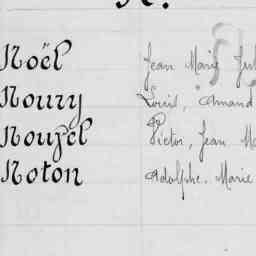 N.
Noël Jean Marie Jul
Noury Louis, Amand
Nouzel Victor, Jean Ma
Noton Adolphe. Marie